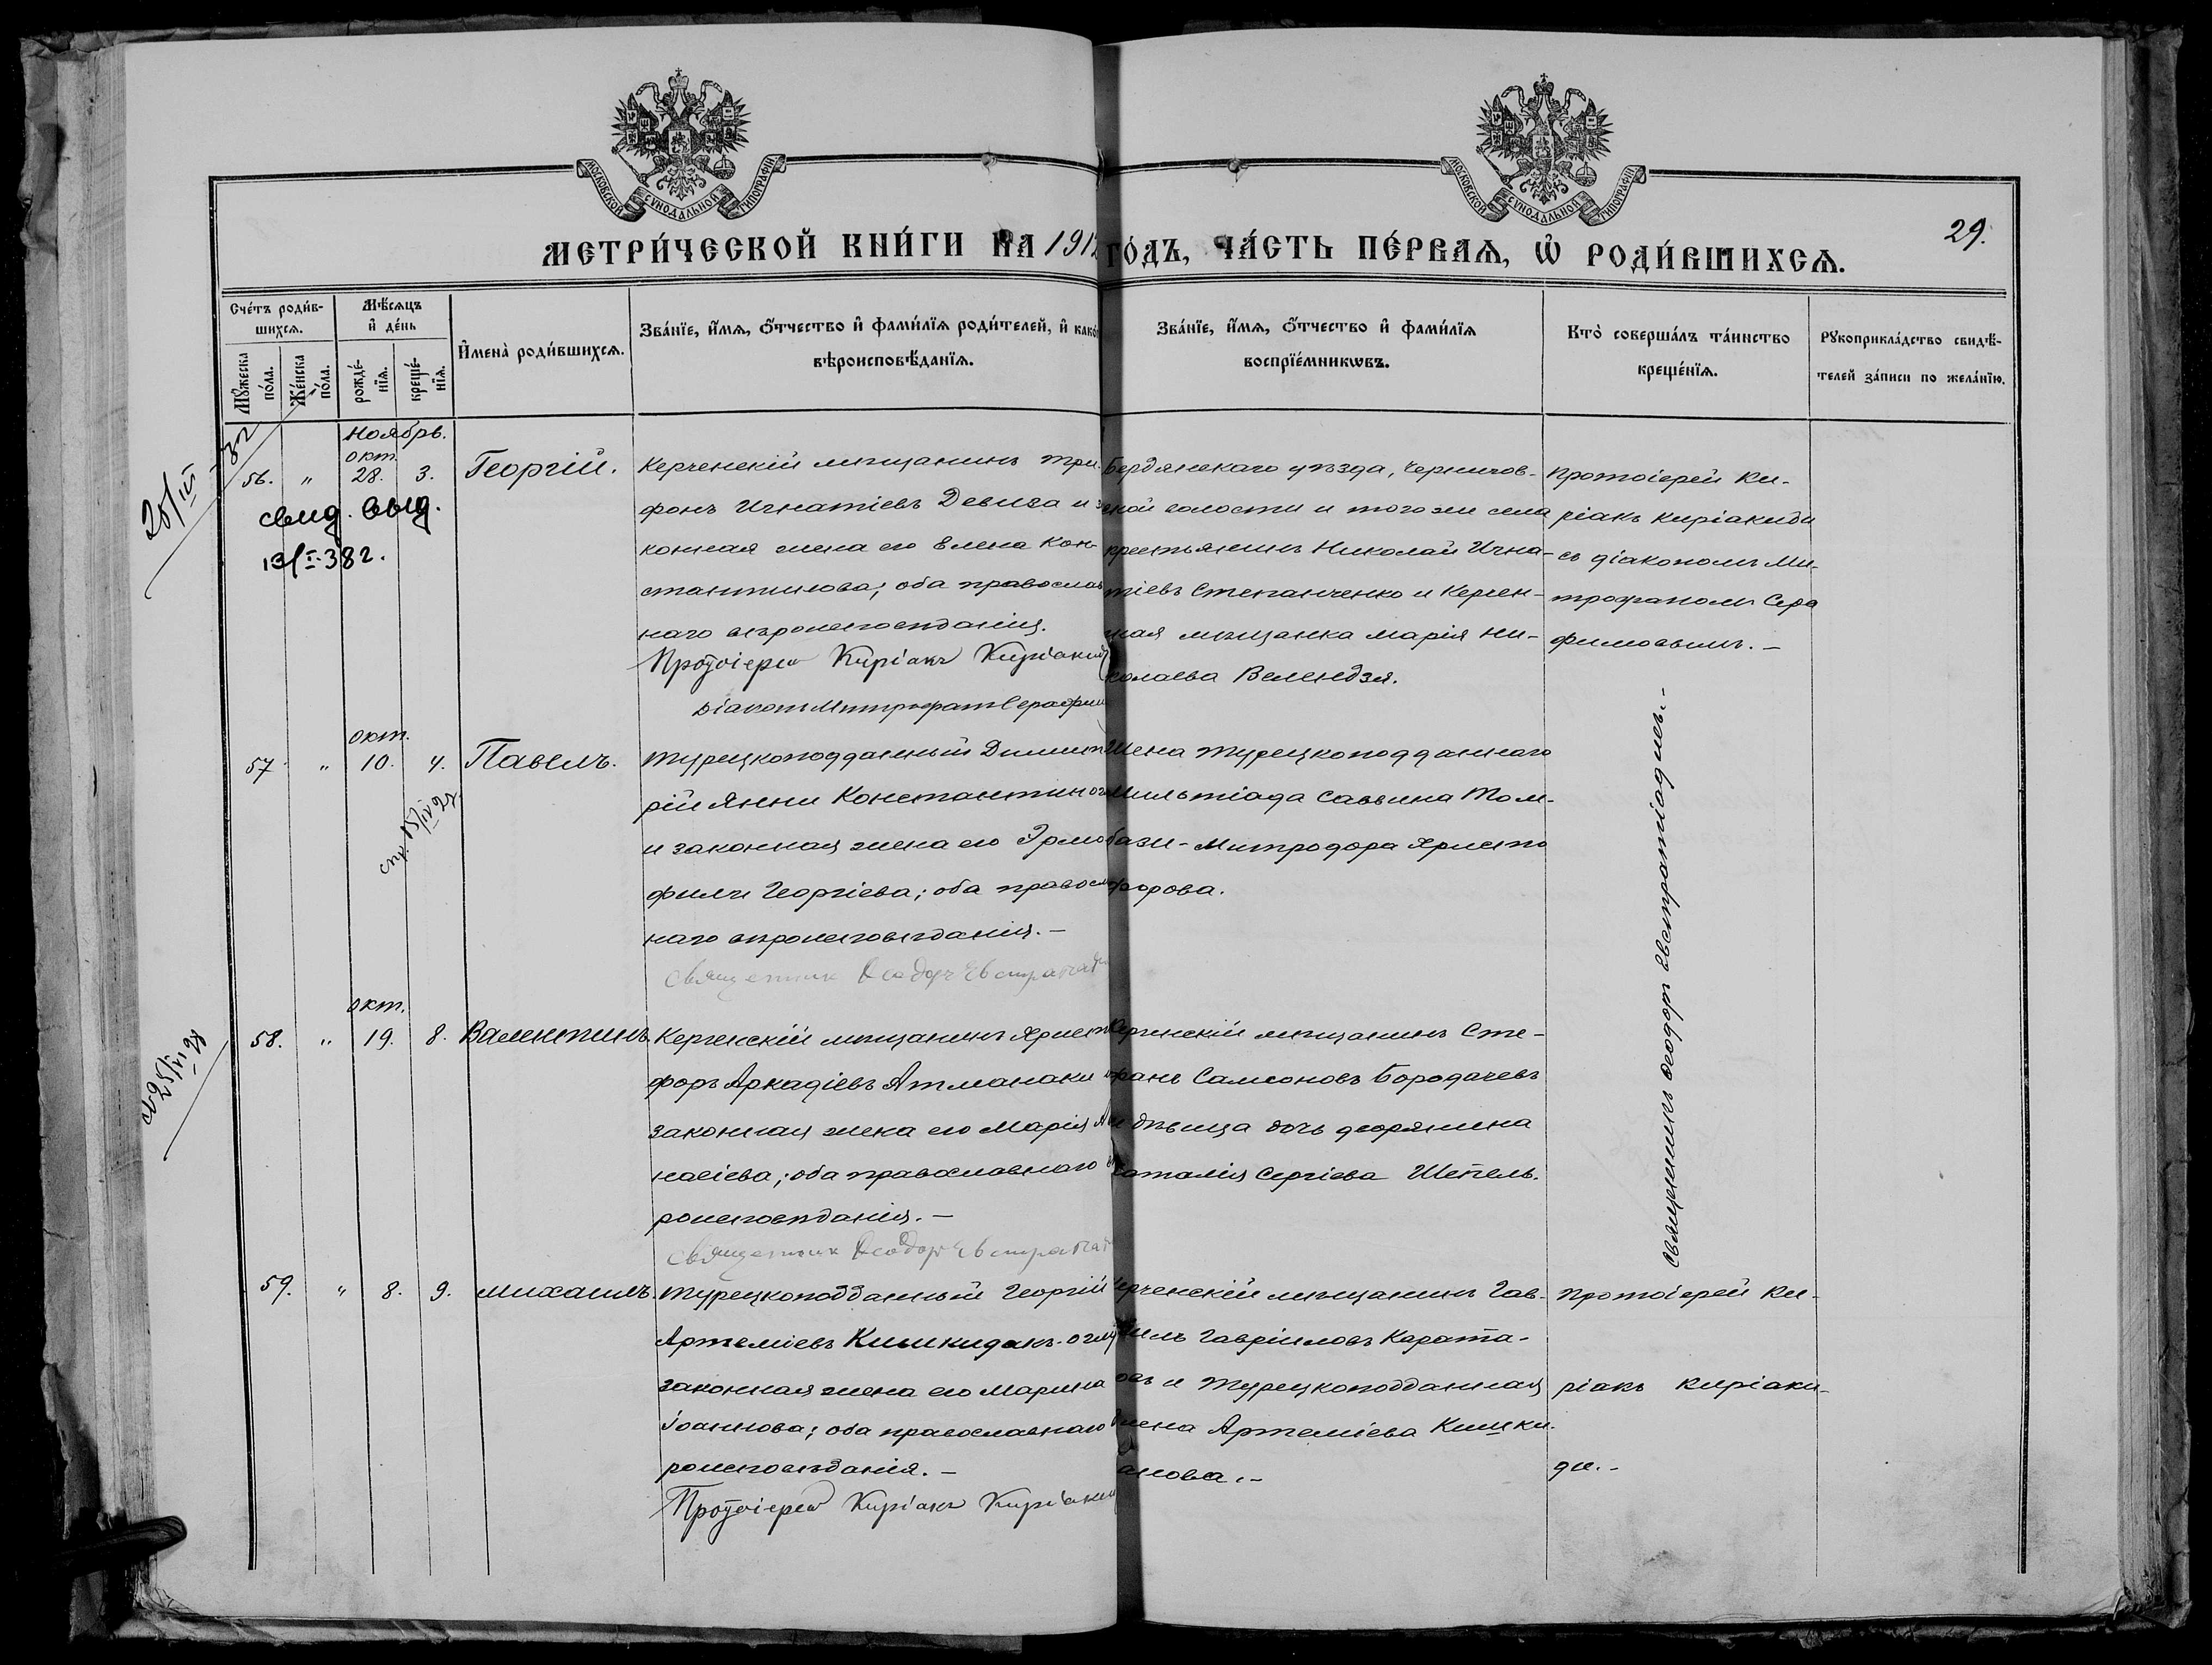 МОСКОВСКОЙ СѴНОДАЛЬНОЙ ТИПОГРАФІИ
МОСКОВСКОЙ СѴНОДАЛЬНОЙ ТИПОГРАФІИ
29.
МЕТРИ́ЧЕСКОЙ КНИ́ГИ НА 1912 ГО́ДЪ, ЧА́СТЬ ПЕ́РВАѦ, Ѡ҆ РОДИ́ВШИХСѦ.
Сче́тъ роди́в-
шихсѧ.
Мꙋ́жеска
по́ла.
Же́нска
по́ла.
Мѣ́сѧцъ
и҆ де́нь
рожде́-
нїѧ.
креще́-
нїѧ.
И҆мена̀ роди́вшихсѧ.
Зва́нїе, и҆́мѧ, ѻ҆́тчество и҆ фами́лїѧ роди́телей, и҆ како́гѡ
вѣроисповѣ́данїѧ.
Зва́нїе, и҆́мѧ, ѻ҆́тчество и҆ фами́лїѧ
воспрїе́мникѡвъ.
Кто̀ соверша́лъ та́инство
креще́нїѧ.
Рꙋкоприкла́дство свидѣ́-
телей за́писи по жела́нїю.
Ноябрь.
окт.
56. " 28. 3. Георгій.
свид. выд.
13/I-38г.
Керченскій мѣщанинъ Три-
фонъ Игнатіевъ Девиза и за-
конная жена его Елена Кон-
стантинова; оба православ
наго вѣроисповѣданія.
Протоіерей Киріакъ Киріакиди
Діаконъ Митрофанъ Серафим
Бердянскаго уѣзда, Чернигов-
ской волости и того же села
крестьянинъ Николай Игна-
тіевъ Степанченко и Керчен-
ская мѣщанка Марія Ни-
колаева Велендзя.
Протоіерей Ки-
ріакъ Киріакиди
съ діакономъ Ми-
трофаномъ Сера
фимовымъ. –
окт.
57. " 10. 4. Павелъ.
спр. 15/IV 27
Турецкоподданный Димит
рій Янни Константиног
и законная жена его Эрмо
фили Георгіева; оба правосла
наго вѣроисповѣданія. –
Священникъ Ѳеодоръ Евстратіа
Жена турецкоподданнаго
Мильтіада Саввина Том-
бази - Митродора Христо
форова.
Священникъ Ѳеодоръ Евстратіадисъ. –
окт.
58. " 19. 8. Валентинъ.
Керченскій мѣщанинъ Христо
форъ Аркадіевъ Атманаки и
законная жена его Марія
насіева; оба православнаго вѣ
роисповѣданія. –
Священникъ Ѳеодоръ Евстратіа
Керченскій мѣщанинъ Сте-
фанъ Самсоновъ Бородачевъ
и дѣвица дочь дворянина
Наталія Сергіева Шепель.
59. " 8. 9. Михаилъ.
Турецкоподданный Георгій
Артеміевъ Кишкидакъ-оглу
законная жена его Марина
Іоаннова; оба православнаго вѣ
роисповѣданія. –
Протоіерей Киріакъ Киріаки
Керченскій мѣщанинъ Гав-
ріилъ Гавріиловъ Карата-
овъ и турецкоподданная
Елена Артеміева Кишки-
Протоіерей Ки-
ріакъ Киріаки-
ди. –